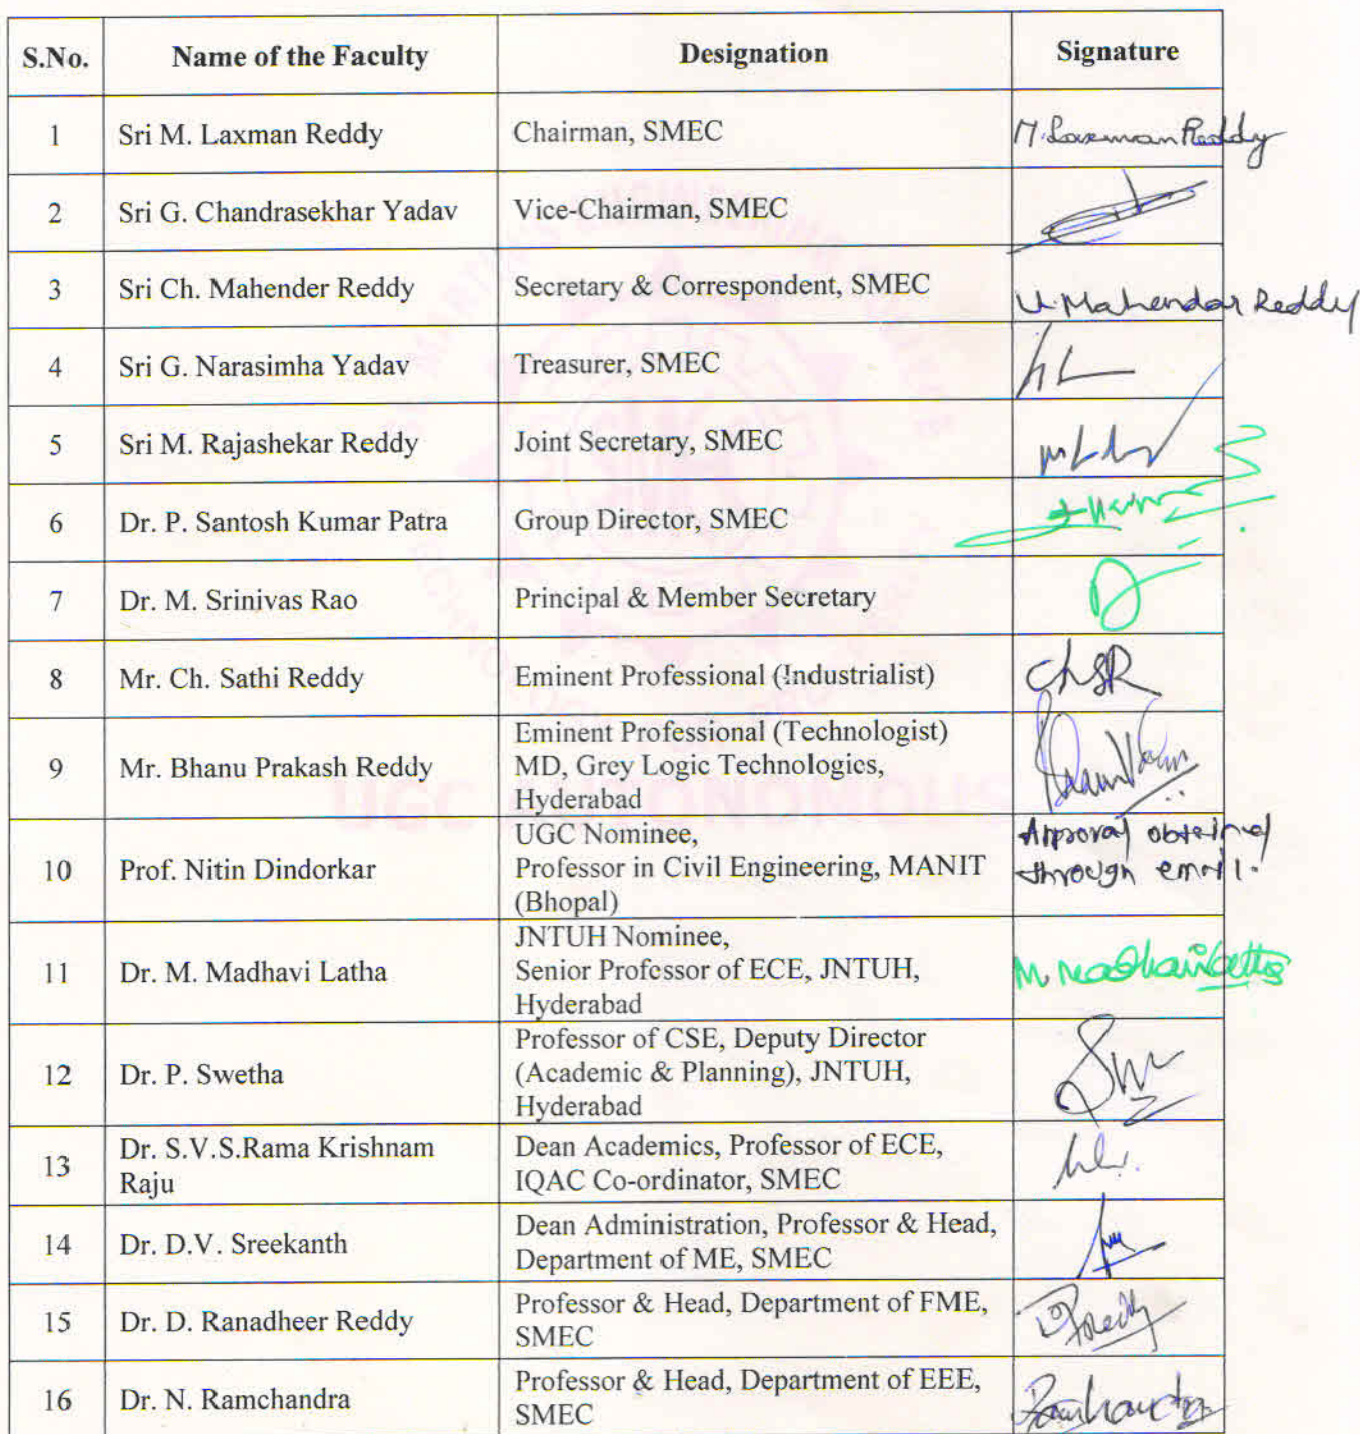 S.No. Name of the Faculty Designation Signature
1 Sri M. Laxman Reddy Chairman, SMEC M. Laxman Reddy
2 Sri G. Chandrasekhar Yadav Vice-Chairman, SMEC
3 Sri Ch. Mahender Reddy Secretary & Correspondent, SMEC Ch. Mahendar Reddy
4 Sri G. Narasimha Yadav Treasurer, SMEC
5 Sri M. Rajashekar Reddy Joint Secretary, SMEC
6 Dr. P. Santosh Kumar Patra Group Director, SMEC
7 Dr. M. Srinivas Rao Principal & Member Secretary
8 Mr. Ch. Sathi Reddy Eminent Professional (Industrialist) ChSR
9 Mr. Bhanu Prakash Reddy Eminent Professional (Technologist)
MD, Grey Logic Technologies,
Hyderabad
10 Prof. Nitin Dindorkar UGC Nominee, Approval obtained
Professor in Civil Engineering, MANIT through email.
(Bhopal)
11 Dr. M. Madhavi Latha JNTUH Nominee, M. Madhavi Latha
Senior Professor of ECE, JNTUH,
Hyderabad
12 Dr. P. Swetha Professor of CSE, Deputy Director
(Academic & Planning), JNTUH,
Hyderabad
13 Dr. S.V.S.Rama Krishnam Dean Academics, Professor of ECE,
Raju IQAC Co-ordinator, SMEC
14 Dr. D.V. Sreekanth Dean Administration, Professor & Head,
Department of ME, SMEC
15 Dr. D. Ranadheer Reddy Professor & Head, Department of FME,
SMEC
16 Dr. N. Ramchandra Professor & Head, Department of EEE,
SMEC
UGC AUTONOMOUS